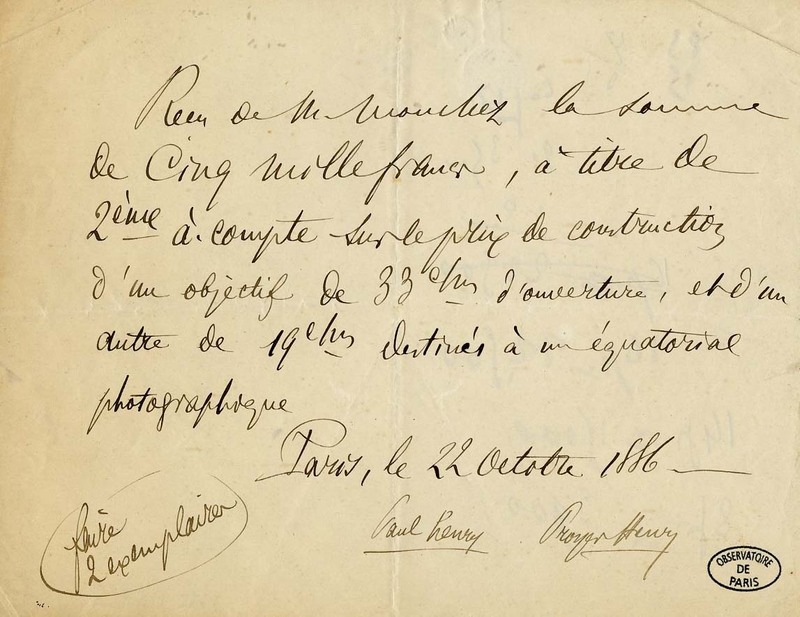 Recu de M. Mouchez la somme
de Cinq mille francs, à titre de
2ème à-compte sur le prix de construction
d'un objectif de 33 c/ms d'ouverture, et d'un
autre de 19 c/ms destinés à un équatorial
photographique
Paris, le 22 Octobre 1886
faire
2 exemplaires
Paul Henry Prosper Henry
OBSERVATOIRE
DE
PARIS